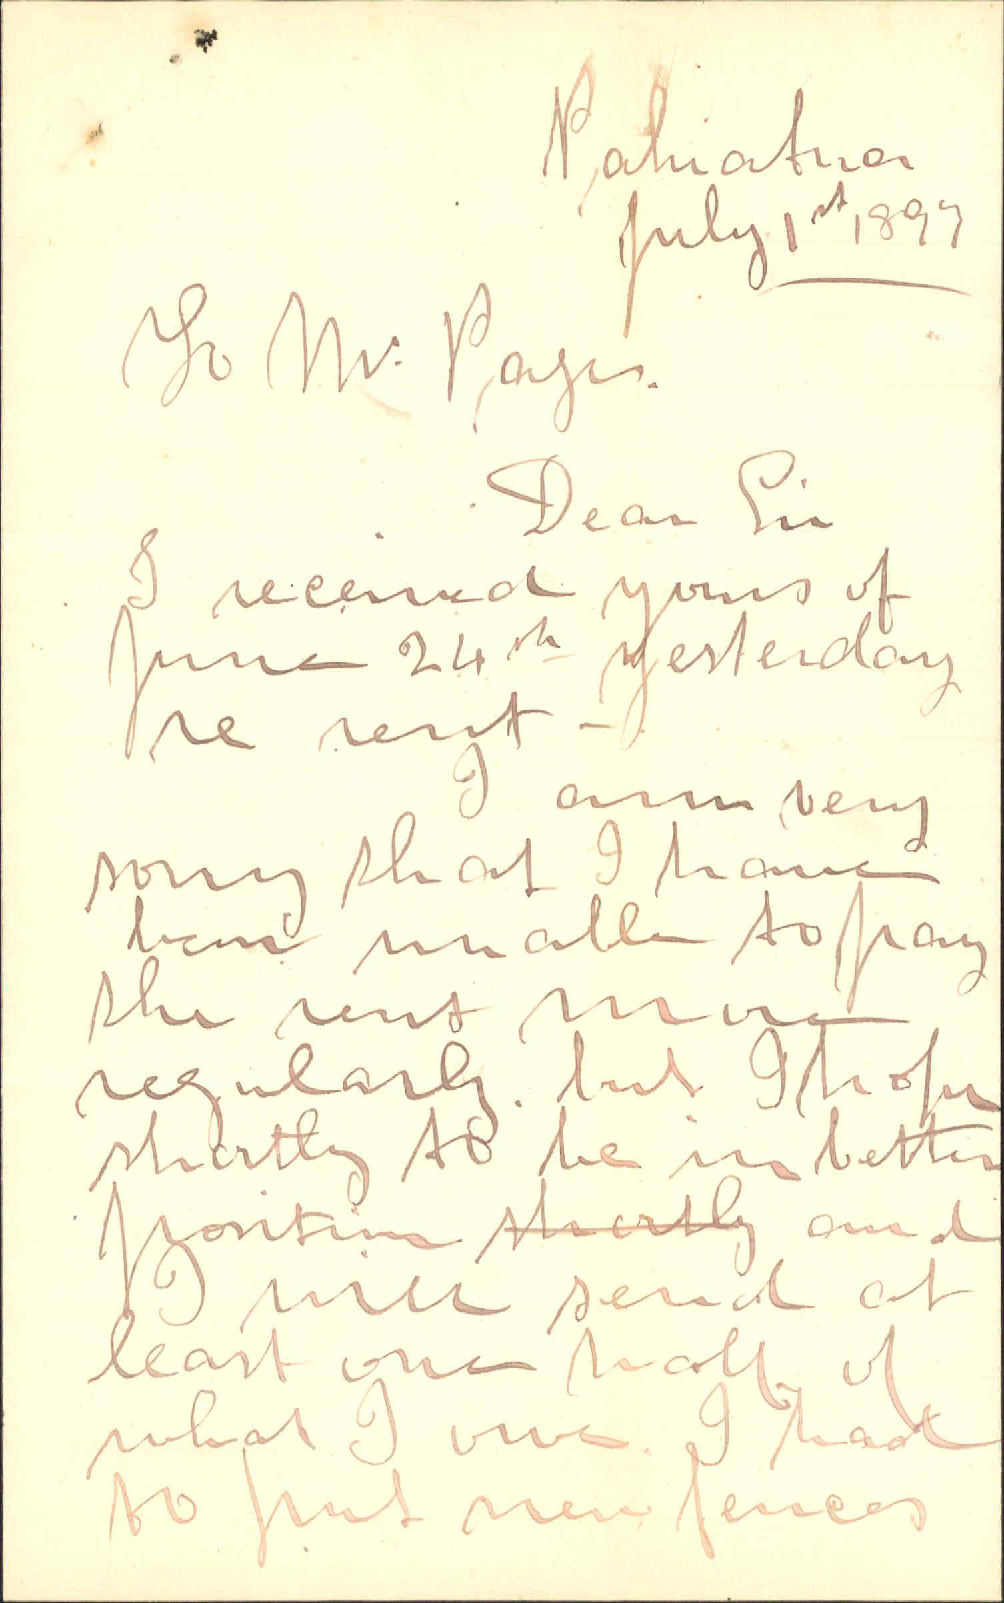 Pahiatua
July 1st 1897
To Mr. Pages.
Dear Sir
I received yours of
June 24th yesterday
re rent -
I am very
sorry that I have
been unable to pay
the rent more
regularly. but I hope
shortly to be in better
position shortly and
I will send at
least one half of
what I owe. I had
to put new fences